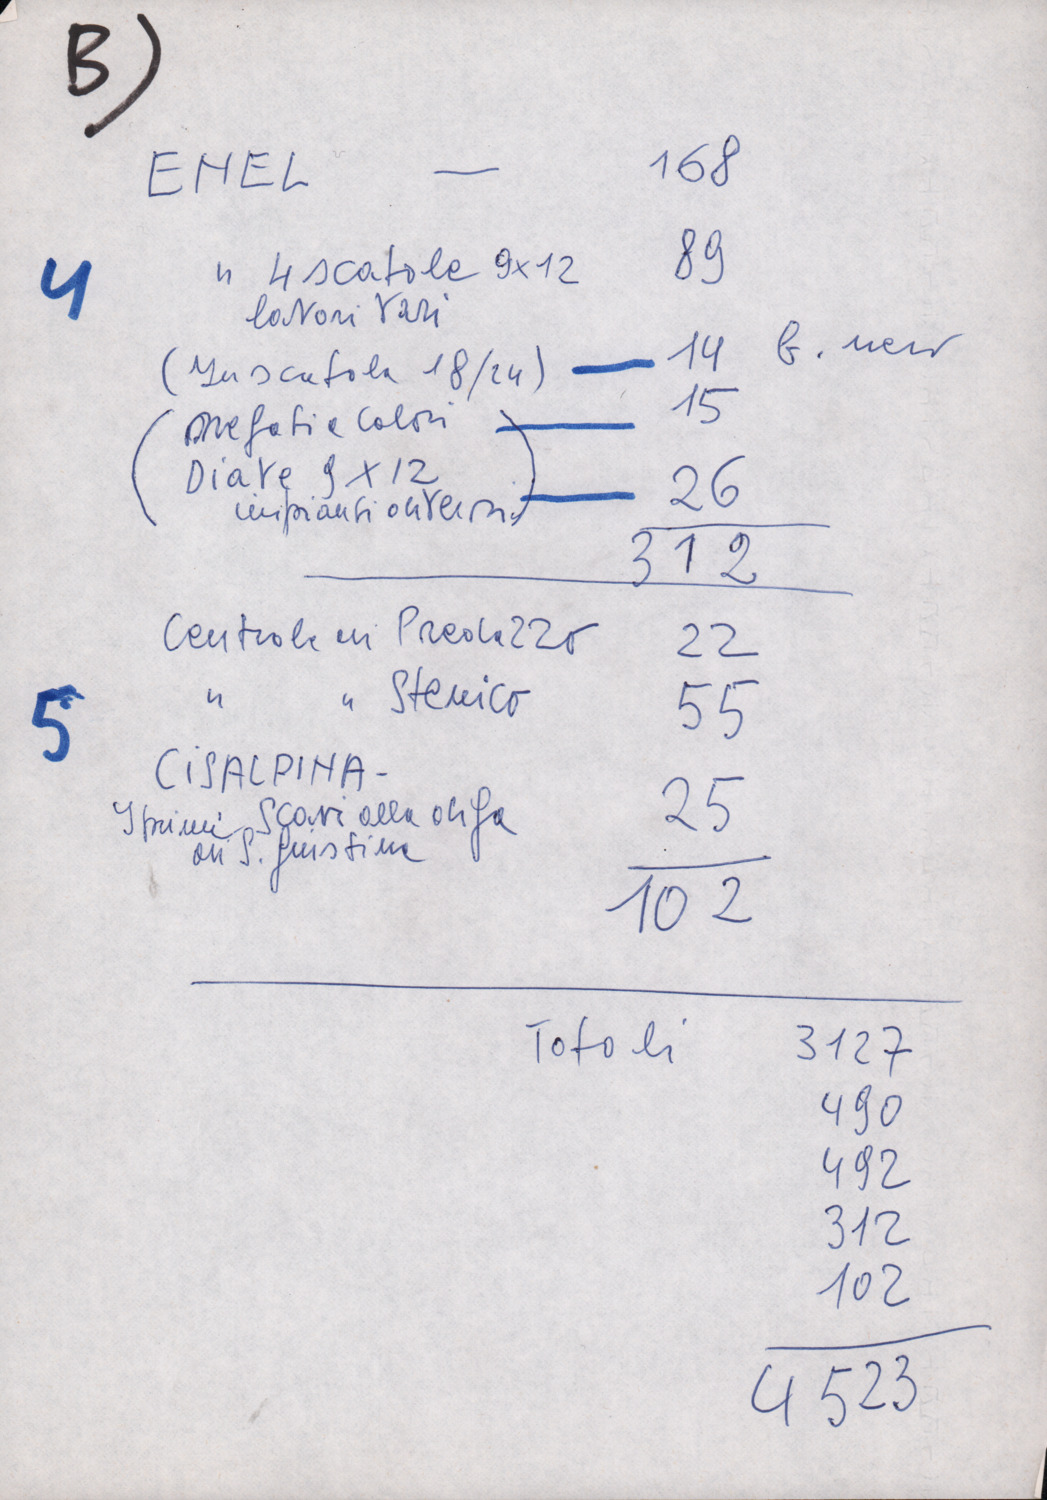 B)
ENEL — 168
4 " 4 scatole 9x12 89
lavori vari
(In scatola 18/24) — 14 b. nero
(Negativi colori — 15
Diave 9x12
impianti diversi) — 26
312
Centrale di Predazzo 22
5 " " Stenico 55
CISALPINA-
I primi scavi alla diga 25
di S. Giustina
102
Totali 3127
490
492
312
102
4523